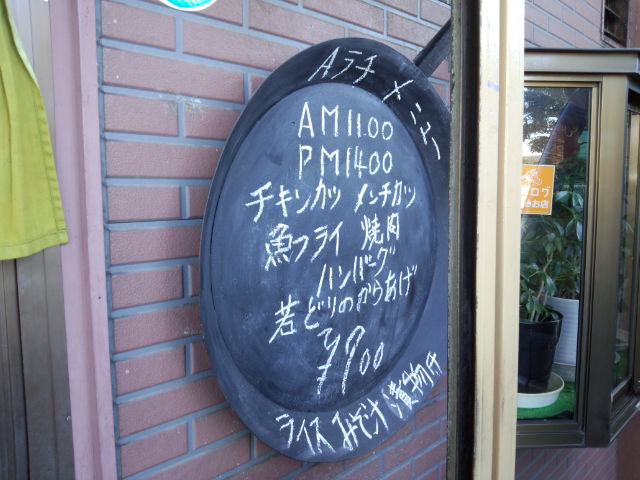 Aラチ メニュー
AM11.00
PM1400
チキンカツ メンチカツ
魚フライ 焼肉
ハンバーグ
若どりのからあげ
¥700
ライス みそ汁 漬物付
ログ
お店